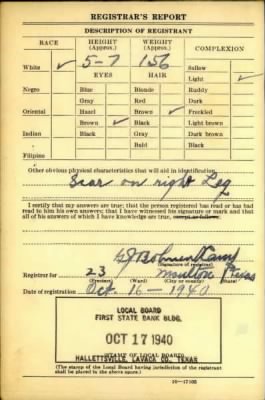 REGISTRAR'S REPORT
DESCRIPTION OF REGISTRANT
RACE HEIGHT (Approx.) WEIGHT (Approx.) COMPLEXION
White ✓ 5-7 156 Sallow
EYES HAIR Light ✓
Negro Blue Blonde Ruddy
Gray Red Dark
Oriental Hazel Brown ✓ Freckled
Brown ✓ Black Light brown
Indian Black Gray Dark brown
Bald Black
Filipino
Other obvious physical characteristics that will aid in identification
Scar on right Leg
I certify that my answers are true; that the person registered has read or has had
read to him his own answers; that I have witnessed his signature or mark and that
all of his answers of which I have knowledge are true, except as follows:
(Signature of registrar)
Registrar for 23 Moulton Texas
(Precinct) (Ward) (City or county) (State)
Date of registration Oct. 16 - 1940
LOCAL BOARD
FIRST STATE BANK BLDG.
OCT 17 1940
STAMP OF LOCAL BOARD
HALLETTSVILLE, LAVACA CO. TEXAS
(The stamp of the Local Board having jurisdiction of the registrant
shall be placed in the above space.)